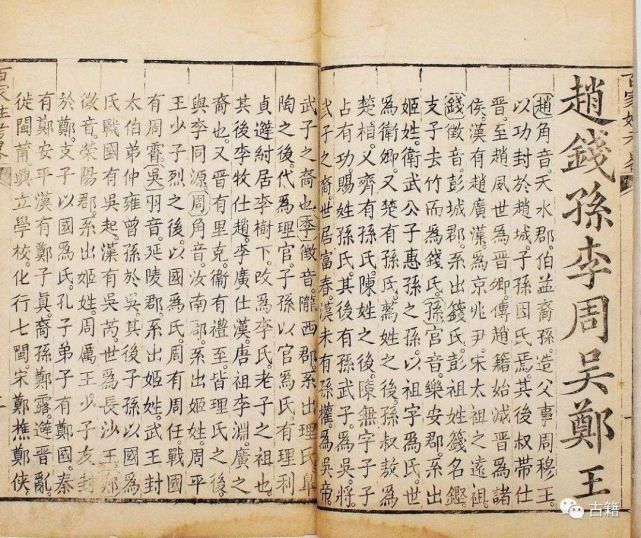 趙錢孫李周吳鄭王
趙角音。天水郡。伯益裔孫。造父事周穆王。
以功封於趙城。子孫因氏焉。其後叔帶仕
晉。至趙威世爲晉卿。傳趙籍始滅晉爲諸
侯。漢有趙廣漢。爲京兆尹。宋太祖之遠祖。
錢徵音。彭城郡。系出籛氏。彭祖姓籛名鏗
支子去竹而爲錢氏。孫宮音。樂安郡。系出
姬姓。衛武公子惠孫之後。以祖字爲氏。世
爲衛卿。又楚有孫氏。蔿姓之後。孫叔敖爲
楚相。又齊有孫氏。陳姓之後。陳無宇子子
占有功賜姓孫氏。其後有孫武子。爲吳將。
武子之裔。世居富春。漢末有孫權。爲吳帝
武子之裔也。李徵音。隴西郡。系出理氏。皐
陶之後。代爲理官。子孫以官爲氏。有理利
貞。避紂居李樹下。改爲李氏。老子之祖也
其後李牧仕趙。李廣仕漢。唐祖李淵。廣之
裔也。又晉有里克。衛有禮至。皆理氏之後。
與李同源。周角音。汝南郡。系出姬姓。周平
王少子烈之後。以國爲氏。周有周任。戰國
有周霄。吳羽音。延陵郡。系出姬姓。武王封
太伯弟仲雍曾孫於吳。其後子孫以國爲
氏。戰國有吳起。漢有吳芮。世爲長沙王。鄭
徵音。滎陽郡。系出姬姓。周厲王少子友封
於鄭。支子以國爲氏。孔子弟子有鄭國。秦
有鄭安平。漢有鄭子眞。裔孫鄭露避晉亂。
徙閩莆。興立學校。化行七閩。宋鄭樵鄭俠。
古籍